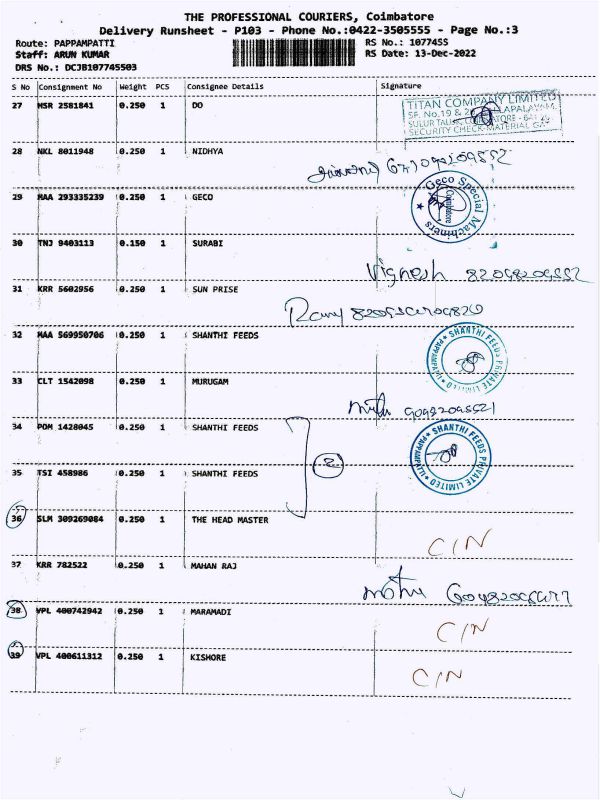 THE PROFESSIONAL COURIERS, Coimbatore
Delivery Runsheet - P103 - Phone No.:0422-3505555 - Page No.:3
Route: PAPPAMPATTI RS No.: 10774SS
Staff: ARUN KUMAR RS Date: 13-Dec-2022
DRS No.: DCJB107745503
S No Consignment No Weight PCS Consignee Details Signature
27 MSR 2581841 0.250 1 DO
TITAN COMPANY LIMITED
SULUR TALUK, COIMBATORE
SECURITY CHECK-MATERIAL GATE
28 NKL 8011948 0.250 1 NIDHYA
29 MAA 293335239 0.250 1 GECO
Geco Special Machiners
Coimbatore
30 TNJ 9403113 0.150 1 SURABI
Vignesh
31 KRR 5602956 0.250 1 SUN PRISE
32 MAA 569950706 0.250 1 SHANTHI FEEDS
SHANTHI FEEDS PRIVATE LIMITED
33 CLT 1542098 0.250 1 MURUGAM
34 POM 1428045 0.250 1 SHANTHI FEEDS
SHANTHI FEEDS PRIVATE LIMITED
PAPPAMPATTI
2
35 TSI 458986 0.250 1 SHANTHI FEEDS
36 SLM 309269084 0.250 1 THE HEAD MASTER
C/N
37 KRR 782522 0.250 1 MAHAN RAJ
38 VPL 400742942 0.250 1 MARAMADI
C/N
39 VPL 400611312 0.250 1 KISHORE
C/N